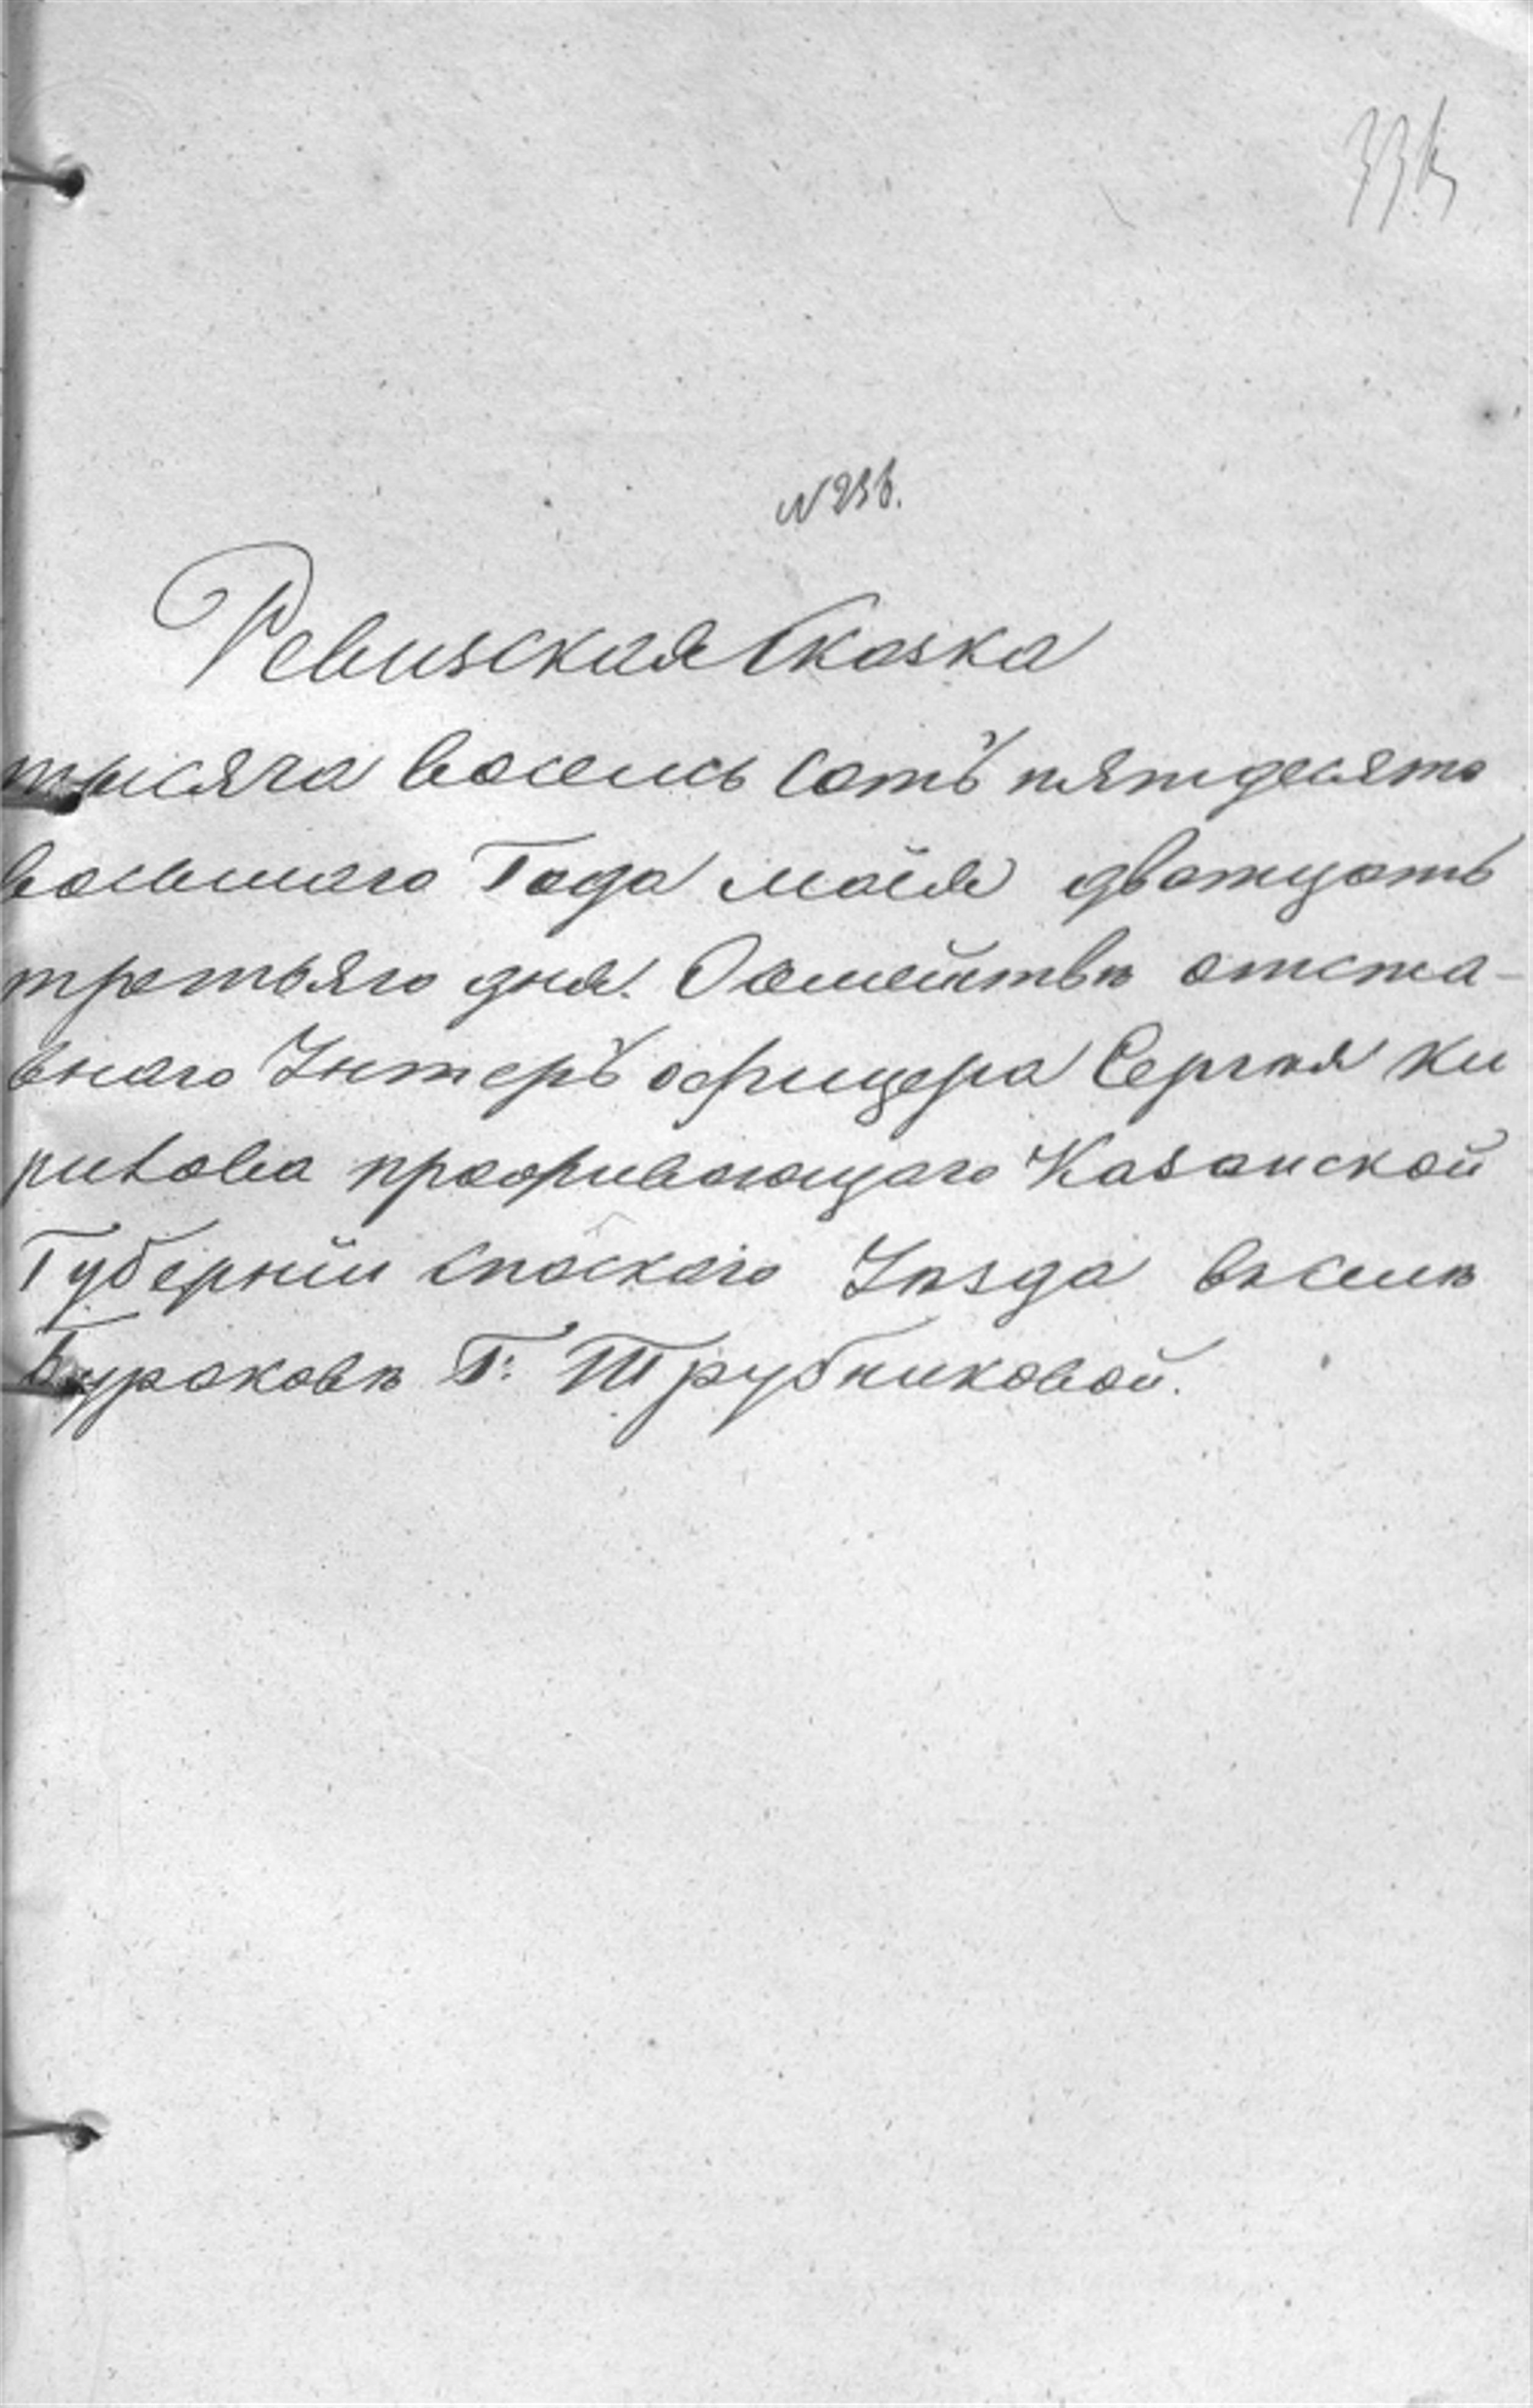 № 236.
Ревизская Сказка
тысяча восемь сотъ пятдесято
восьмаго Года маія дватцать
третьяго дня. О семействѣ отста-
внаго Унтеръ офицера Сергѣя Ки
рилова проживающаго Казанской
Губерніи Спаскаго Уѣзда вселѣ
Бураковѣ Г: Трубниковой.